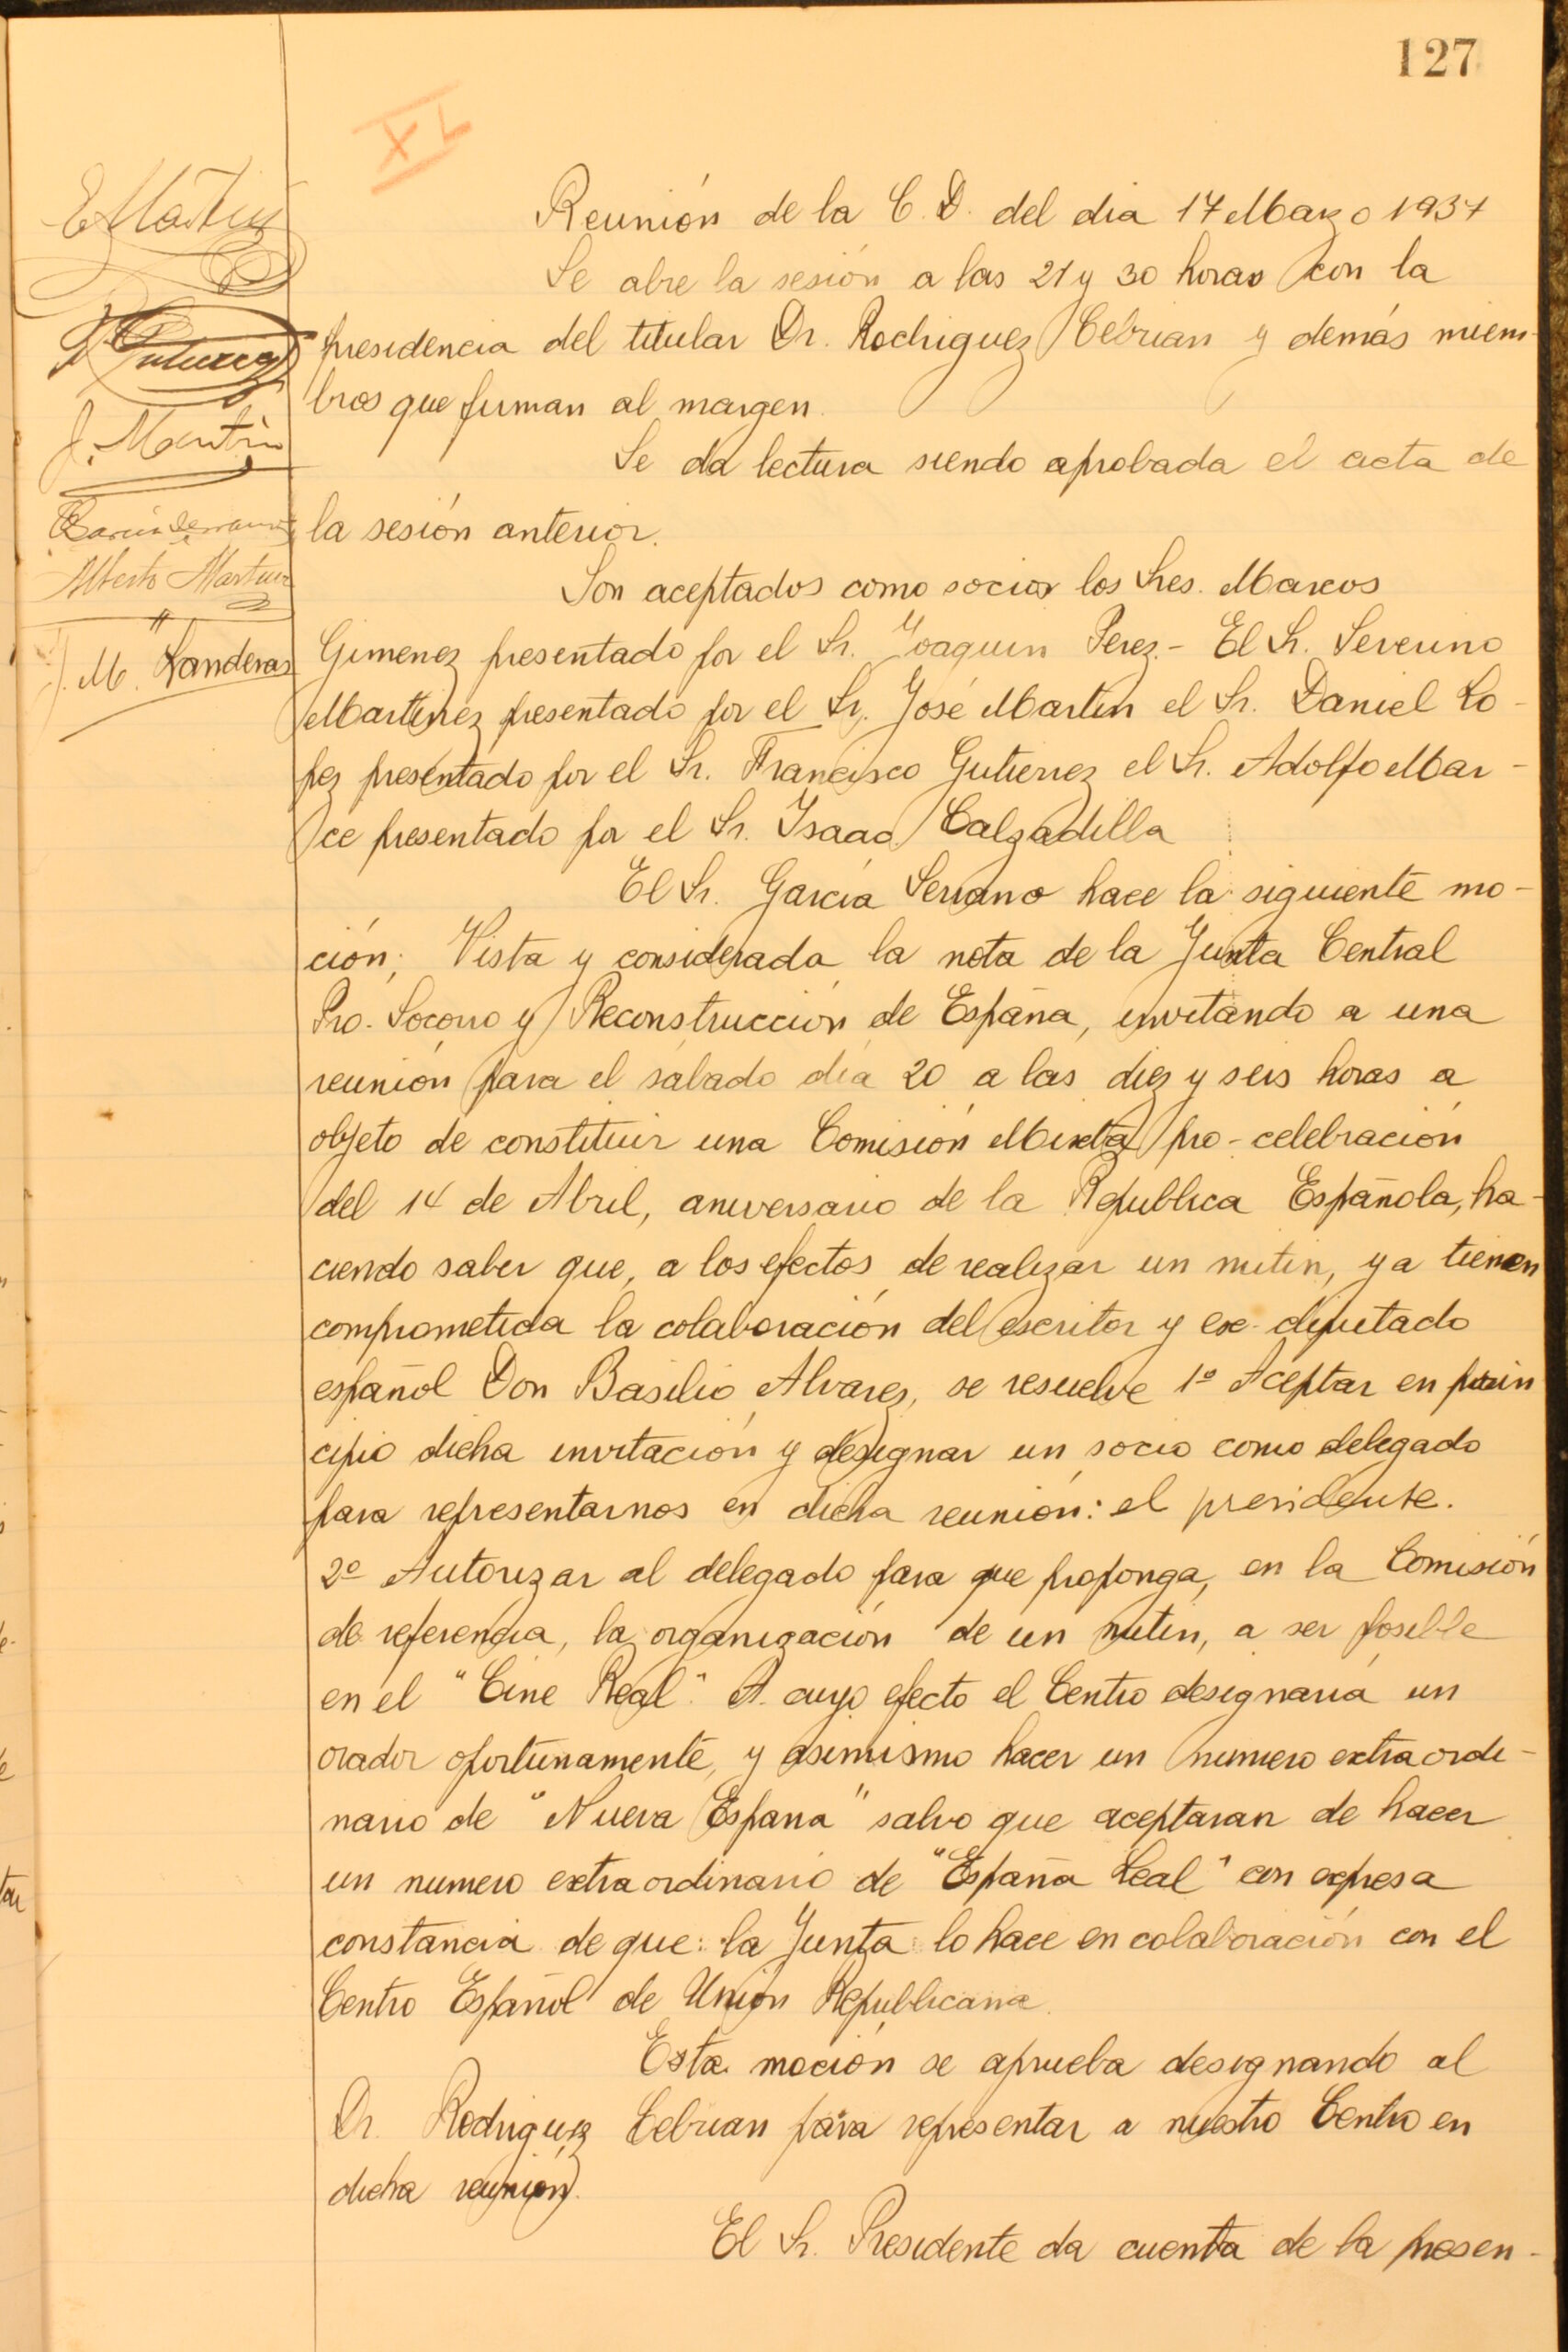 127
XL
Reunión de la C. D. del dia 17 Marzo 1937
Se abre la sesión a las 21 y 30 horas con la
presidencia del titular Dr. Rodriguez Cebrian y demás miem-
bros que firman al margen.
Se da lectura siendo aprobada el acta de
la sesión anterior.
Son aceptados como socios los Sres. Marcos
Gimenez presentado por el Sr. Joaquin Perez.- El Sr. Severino
Martinez presentado por el Sr. José Martin el Sr. Daniel Lo-
pez presentado por el Sr. Francisco Gutierrez el Sr. Adolfo Mar-
ce presentado por el Sr. Isaac Calzadilla
El Sr. García Serrano hace la siguiente mo-
ción; Vista y considerada la nota de la Junta Central
Pro. Socorro y Reconstrucción de España, invitando a una
reunión para el sábado día 20 a las diez y seis horas a
objeto de constituir una Comisión Mixta pro-celebración
del 14 de Abril, aniversario de la Republica Española, ha-
ciendo saber que, a los efectos de realizar un mitin, ya tienen
comprometida la colaboración del escritor y ex-diputado
español Don Basilio Alvarez, se resuelve 1º Aceptar en prin
cipio dicha invitación y designar un socio como delegado
para representarnos en dicha reunión: el presidente.
2º Autorizar al delegado para que proponga, en la Comisión
de referencia, la organización de un mitin, a ser posible
en el "Cine Real". A cuyo efecto el Centro designaría un
orador oportunamente, y asimismo hacer un numero extraordi-
nario de "Nueva España" salvo que aceptaran de hacer
un numero extraordinario de "España Leal" con expresa
constancia de que: la Junta lo hace en colaboración con el
Centro Español de Unión Republicana.
Esta moción se aprueba designando al
Dr. Rodriguez Cebrian para representar a nuestro Centro en
dicha reunión.
El Sr. Presidente da cuenta de la presen-
E Martinez
J. Martin
García Serrano
Alberto Martinez
M. Landeras